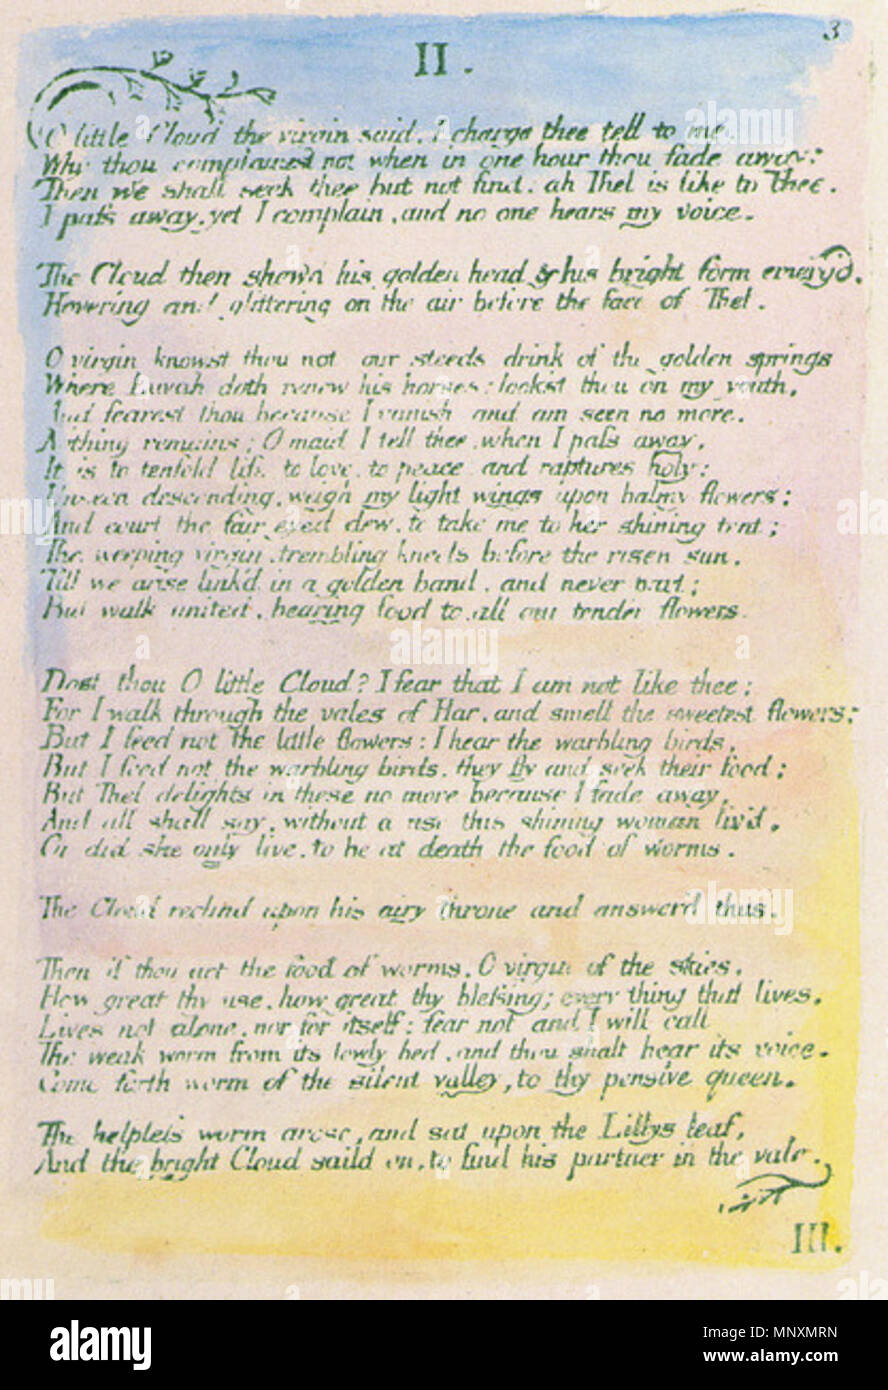 3
II.
O little Cloud the virgin said, I charge thee tell to me,
Why thou complainest not when in one hour thou fade away:
Then we shall seek thee but not find. ah Thel is like to Thee.
I pass away, yet I complain, and no one hears my voice.
The Cloud then shew'd his golden head & his bright form emerg'd.
Hovering and glittering on the air before the face of Thel.
O virgin knowst thou not our steeds drink of the golden springs
Where Luvah doth renew his horses: lookst thou on my youth,
And fearest thou because I vanish and am seen no more.
Nothing remains; O maid I tell thee, when I pass away,
It is to tenfold life, to love, to peace and raptures holy:
Unseen descending, weigh my light wings upon balmy flowers;
And court the fair eyed dew, to take me to her shining tent;
The weeping virgin, trembling kneels before the risen sun,
Till we arise link'd in a golden band, and never part;
But walk united, bearing food to all our tender flowers
Dost thou O little Cloud? I fear that I am not like thee;
For I walk through the vales of Har, and smell the sweetest flowers;
But I feed not the little flowers: I hear the warbling birds,
But I feed not the warbling birds, they fly and seek their food;
But Thel delights in these no more because I fade away,
And all shall say, without a use this shining woman liv'd,
Or did she only live, to be at death the food of worms.
The Cloud reclind upon his airy throne and answerd thus.
Then if thou art the food of worms, O virgin of the skies,
How great thy use, how great thy blessing; every thing that lives,
Lives not alone, nor for itself: fear not and I will call
The weak worm from its lowly bed, and thou shalt hear its voice.
Come forth worm of the silent valley, to thy pensive queen.
The helpless worm arose, and sat upon the Lillys leaf,
And the bright Cloud saild on, to find his partner in the vale.
III.
alamy
Image ID: MNXMRN
www.alamy.com